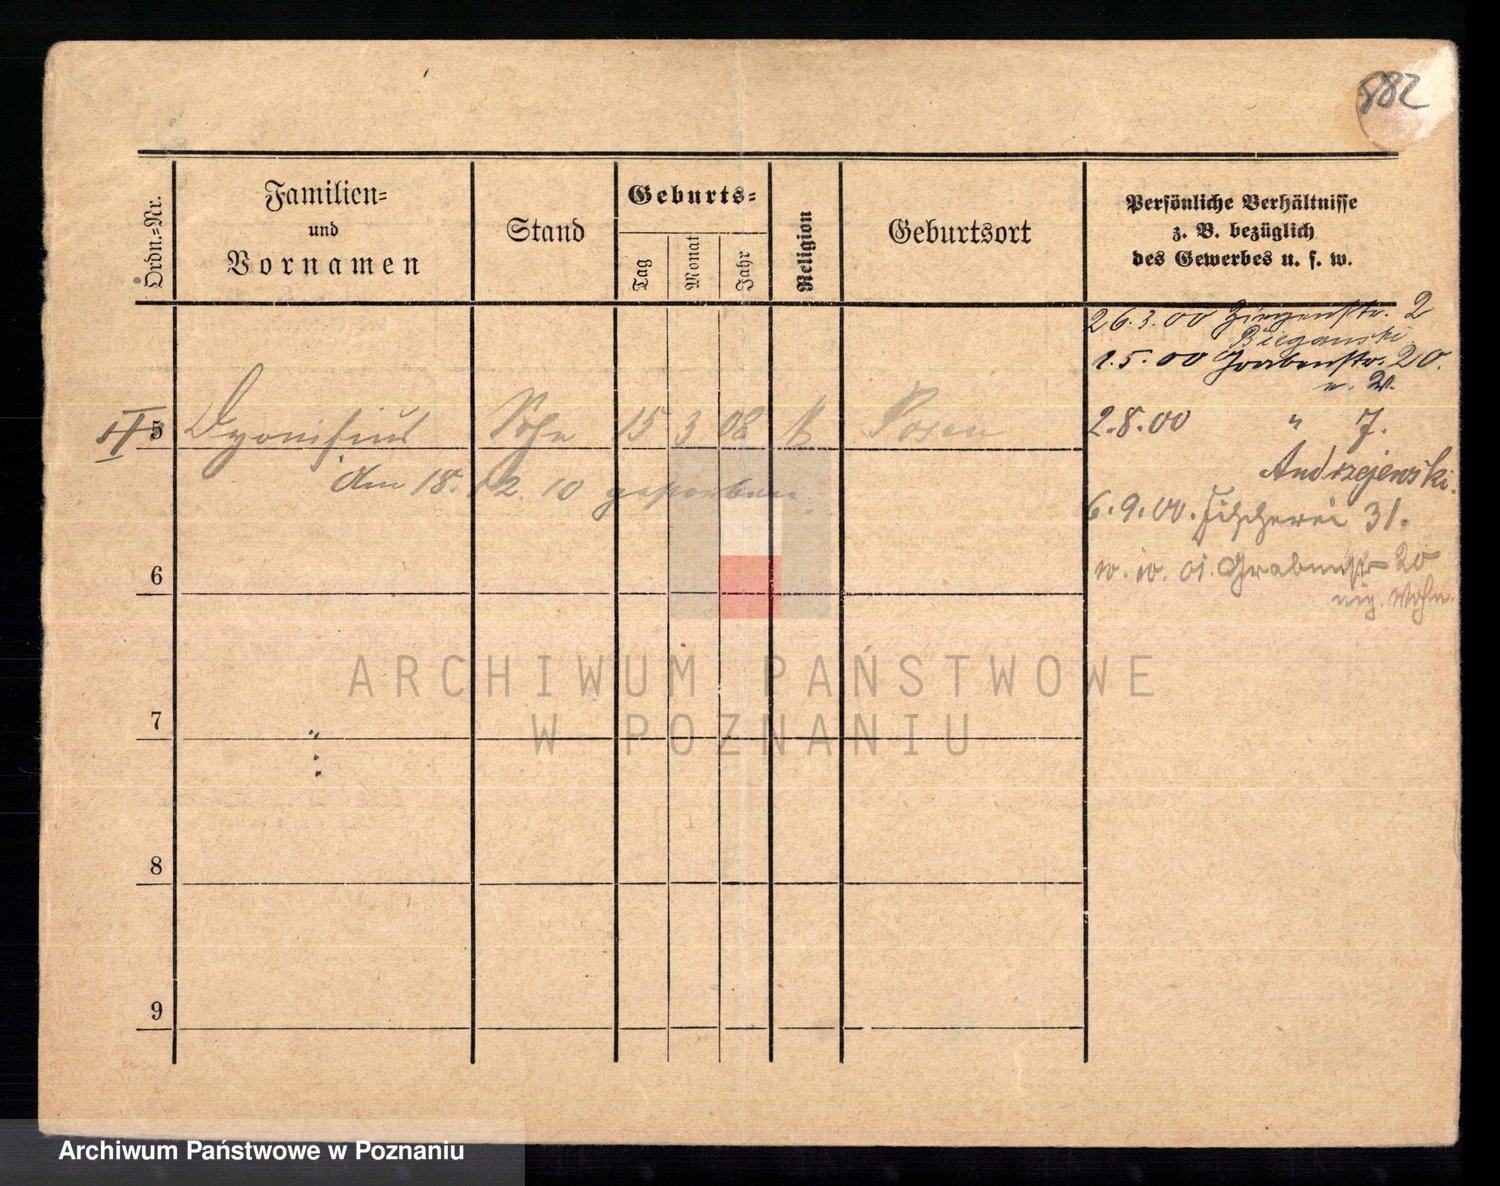 882
Ordn.=Nr.
Familien=
und
Vornamen
Stand
Geburts=
Tag
Monat
Jahr
Religion
Geburtsort
Persönliche Verhältnisse
z. B. bezüglich
des Gewerbes u. s. w.
26.3.00 Ziegenstr. 2
Bieganski
1.5.00 Grabenstr. 20.
2.8.00 " 7.
Andrzejewski.
6.9.00. Fischerei 31.
10. 10. 01. Grabenstr 20
5 Dyonisius Sohn 15 3 08 k Posen
am 18. 12. 10 gestorben
6
7
8
9
ARCHIWUM PAŃSTWOWE
W POZNANIU
Archiwum Państwowe w Poznaniu